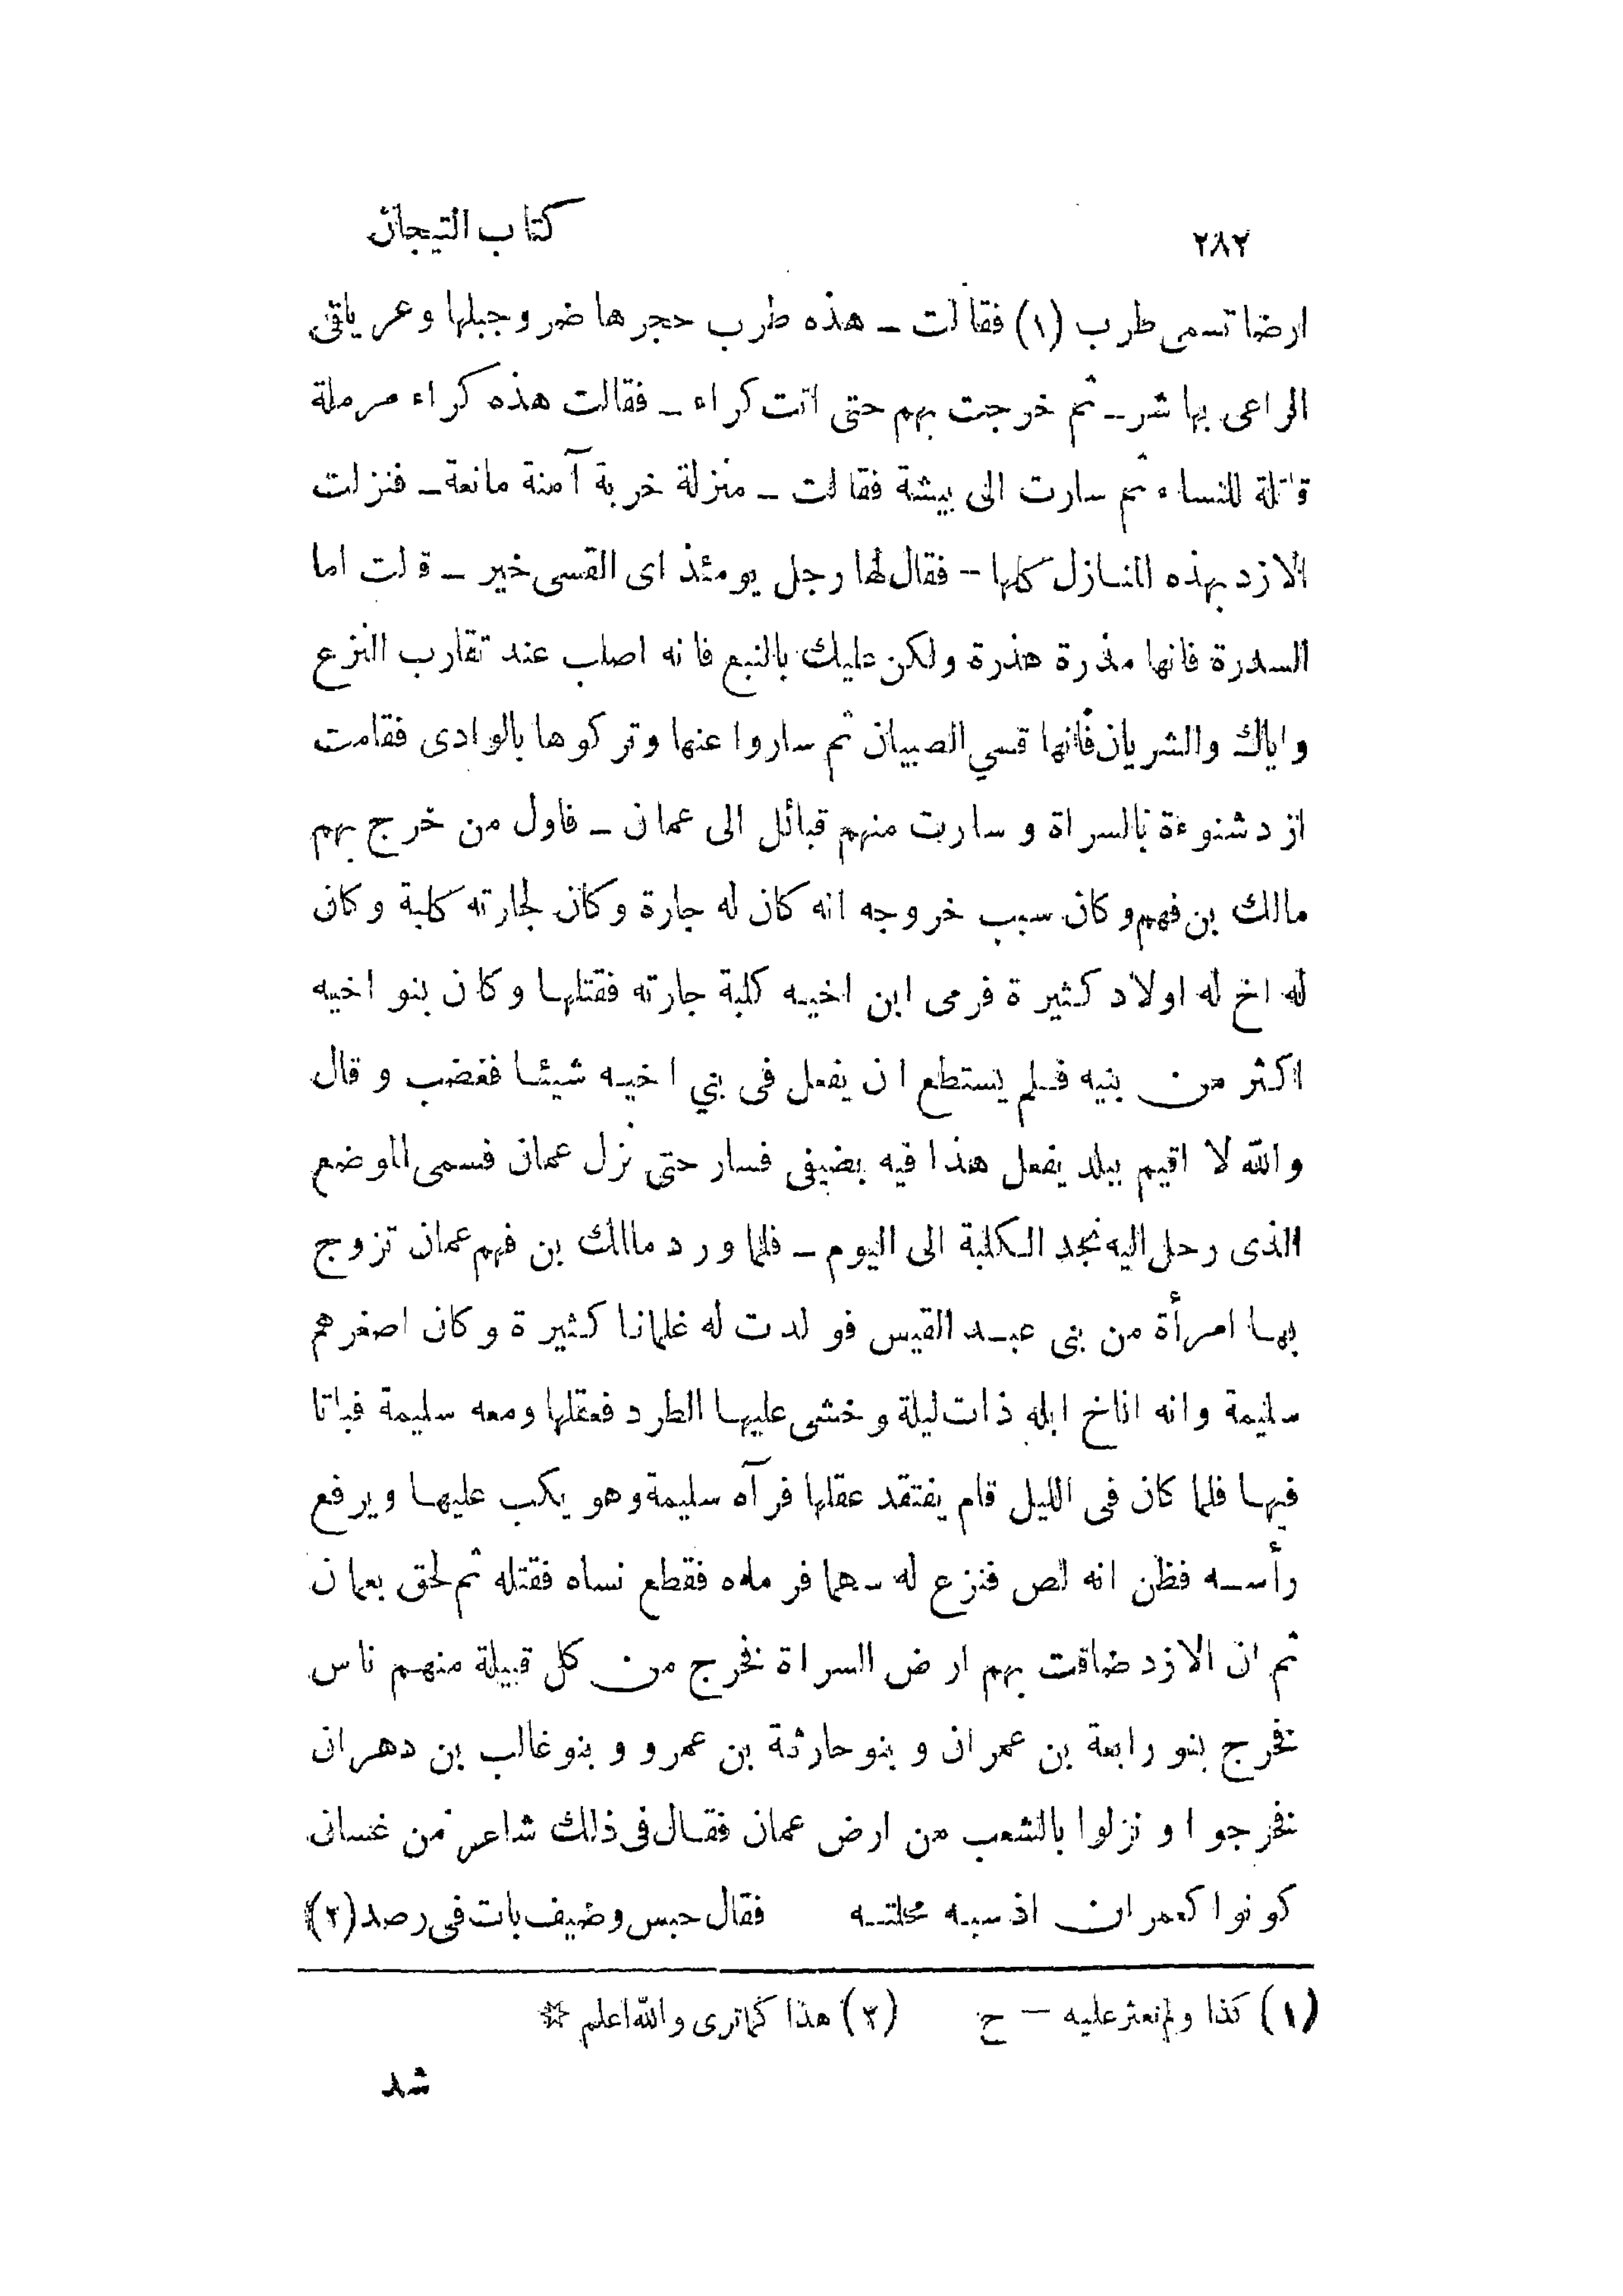 ٢٨٢ كتاب التيجان
ارضا تسمى طرب (١) فقالت ـ هذه طرب حجرها ضر وجبلها وعر ياقى
الراعى بها شر ـ ثم خرجت بهم حتى اتت كراء ـ فقالت هذه كراء مرملة
قاتلة للنساء ثم سارت الى بيشة فقالت ـ منزلة خربة آمنة مانعة ـ فنزلت
الازد بهذه المنازل كلها ـ فقال لها رجل يومئذ اى القسى خير ـ قالت اما
السدرة فانها مذرة هذرة ولكن عليك بالنبع فانه اصلب عند تقارب النزع
واياك والشريان فانها قسي الصبيان ثم ساروا عنها وتركوها بالوادى فقامت
ازد شنوءة بالسراة وسارت منهم قبائل الى عمان ـ فاول من خرج بهم
مالك بن فهم وكان سبب خروجه انه كان له جارة وكان لجارته كلبة وكان
له اخ له اولاد كثيرة فرمى ابن اخيه كلبة جارته فقتلها وكان بنو اخيه
اكثر من بنيه فلم يستطع ان يفعل فى بني اخيه شيئا فغضب وقال
والله لا اقيم ببلد يفعل هذا فيه بضيفى فسار حتى نزل عمان فسمى الموضع
الذى رحل اليه نجد الكلبة الى اليوم ـ فلما ورد مالك بن فهم عمان تزوج
بها امرأة من بنى عبد القيس فولدت له غلمانا كثيرة وكان اصغرهم
سليمة وانه اناخ ابله ذات ليلة وخشى عليها الطرد فعقلها ومعه سليمة فباتا
فيها فلما كان فى الليل قام يفتقد عقلها فرآه سليمة وهو يكب عليها ويرفع
رأسه فظن انه لص فنزع له سهما فرماه فقطع نساه فقتله ثم لحق بعمان
ثم ان الازد ضاقت بهم ارض السراة فخرج من كل قبيلة منهم ناس
فخرج بنو رابعة بن عمران وبنو حارثة بن عمرو وبنو غالب بن دهران
فخرجوا ونزلوا بالشعب من ارض عمان فقال فى ذلك شاعر من غسان
كونوا كعمران اذ سبه محلته فقال حبس وضيف بات فى رصد (٢)
(١) كذا ولم نعثر عليه — ح (٢) هذا كما ترى والله اعلم ☆
شد